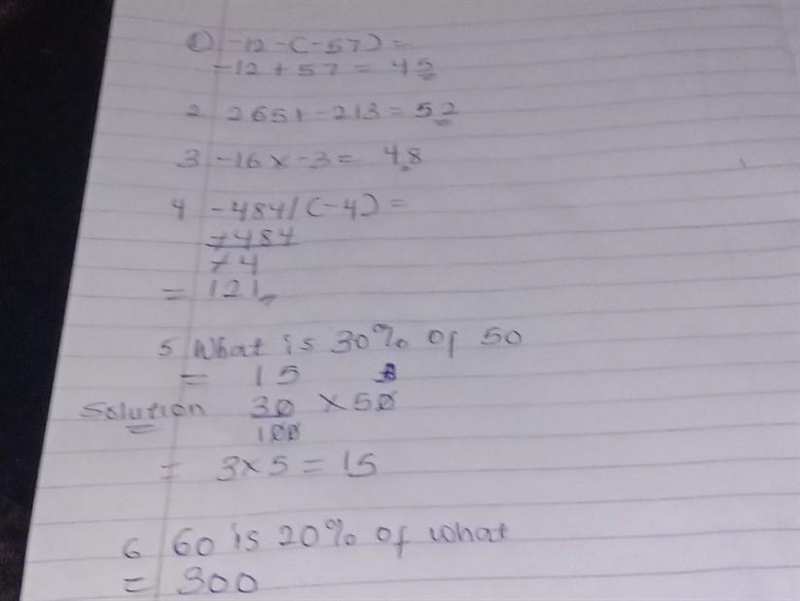 ① -12 - (-57) =
-12 + 57 = 45
2 265 + -213 = 52
3 -16 x -3 = 48
4 -484/(-4) =
-484
-4
= 121
5 What is 30% of 50
= 15
Solution 30 x 50
100
= 3x5 = 15
6 60 is 20% of what
= 300